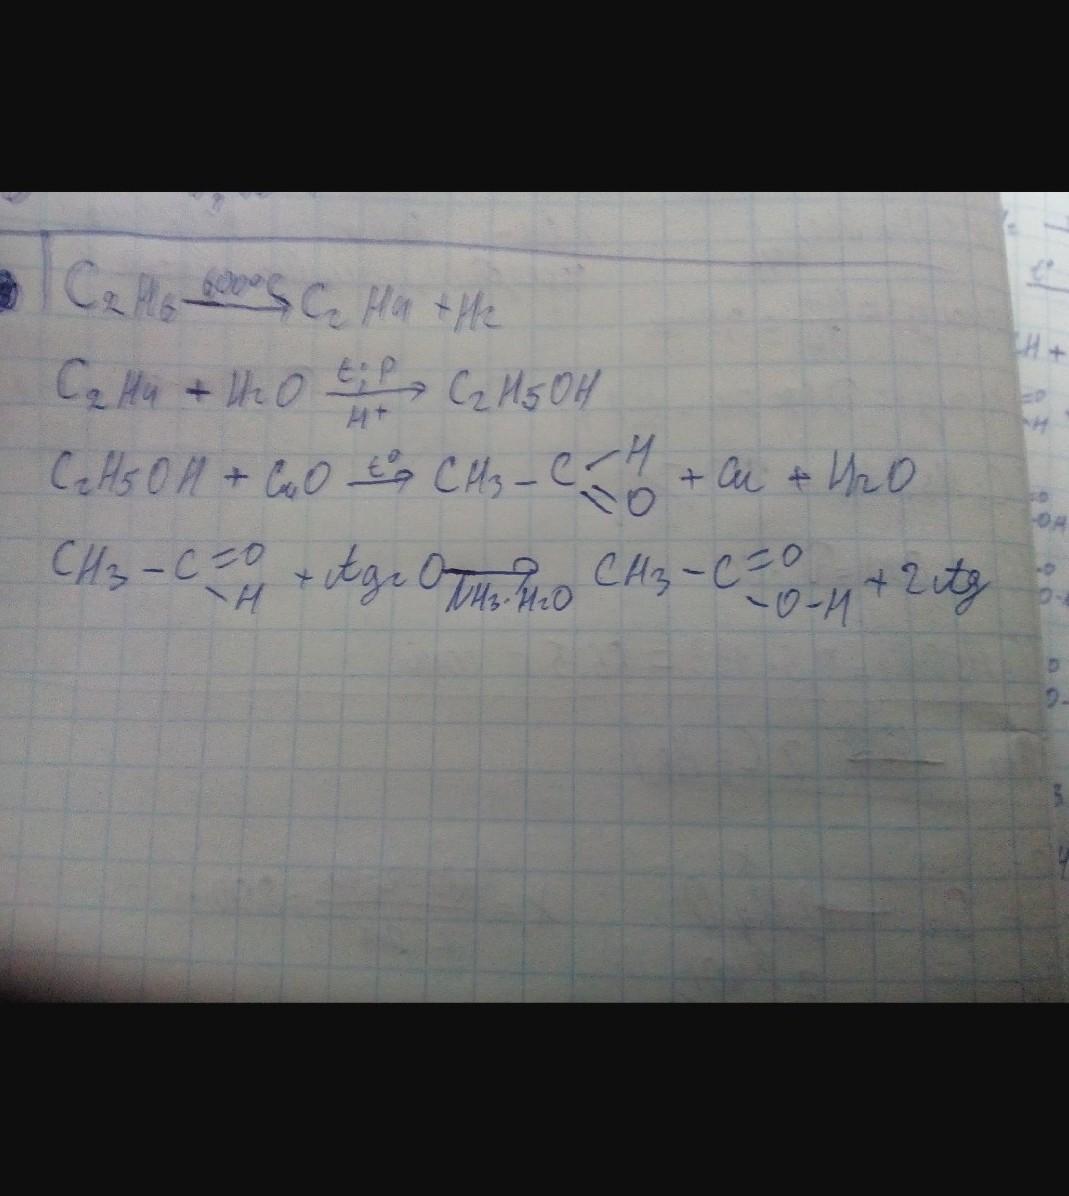 C₂H₆ 600°C → C₂H₄ + H₂
C₂H₄ + H₂O t; P → H⁺ C₂H₅OH
C₂H₅OH + CuO t° → CH₃ – C –H =O + Cu + H₂O
CH₃ – C =O –H + Ag₂O → NH₃·H₂O CH₃ – C =O –O–H + 2Ag